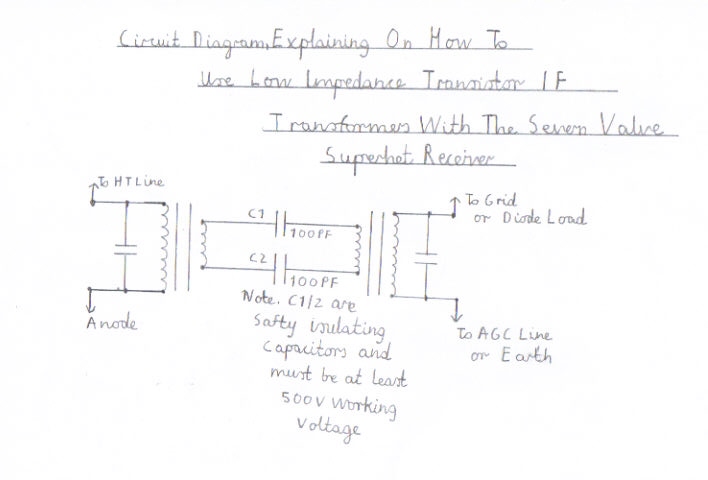 Circuit Diagram, Explaining On How To
Use Low Impedance Transistor IF
Transformers With The Seven Valve
Superhet Receiver
To HT Line
C1
100PF
To Grid
or Diode Load
C2
100PF
Anode
Note. C1/2 are
Safty isulating
Capacitors and
must be at least
500V Working
Voltage
To AGC Line
or Earth